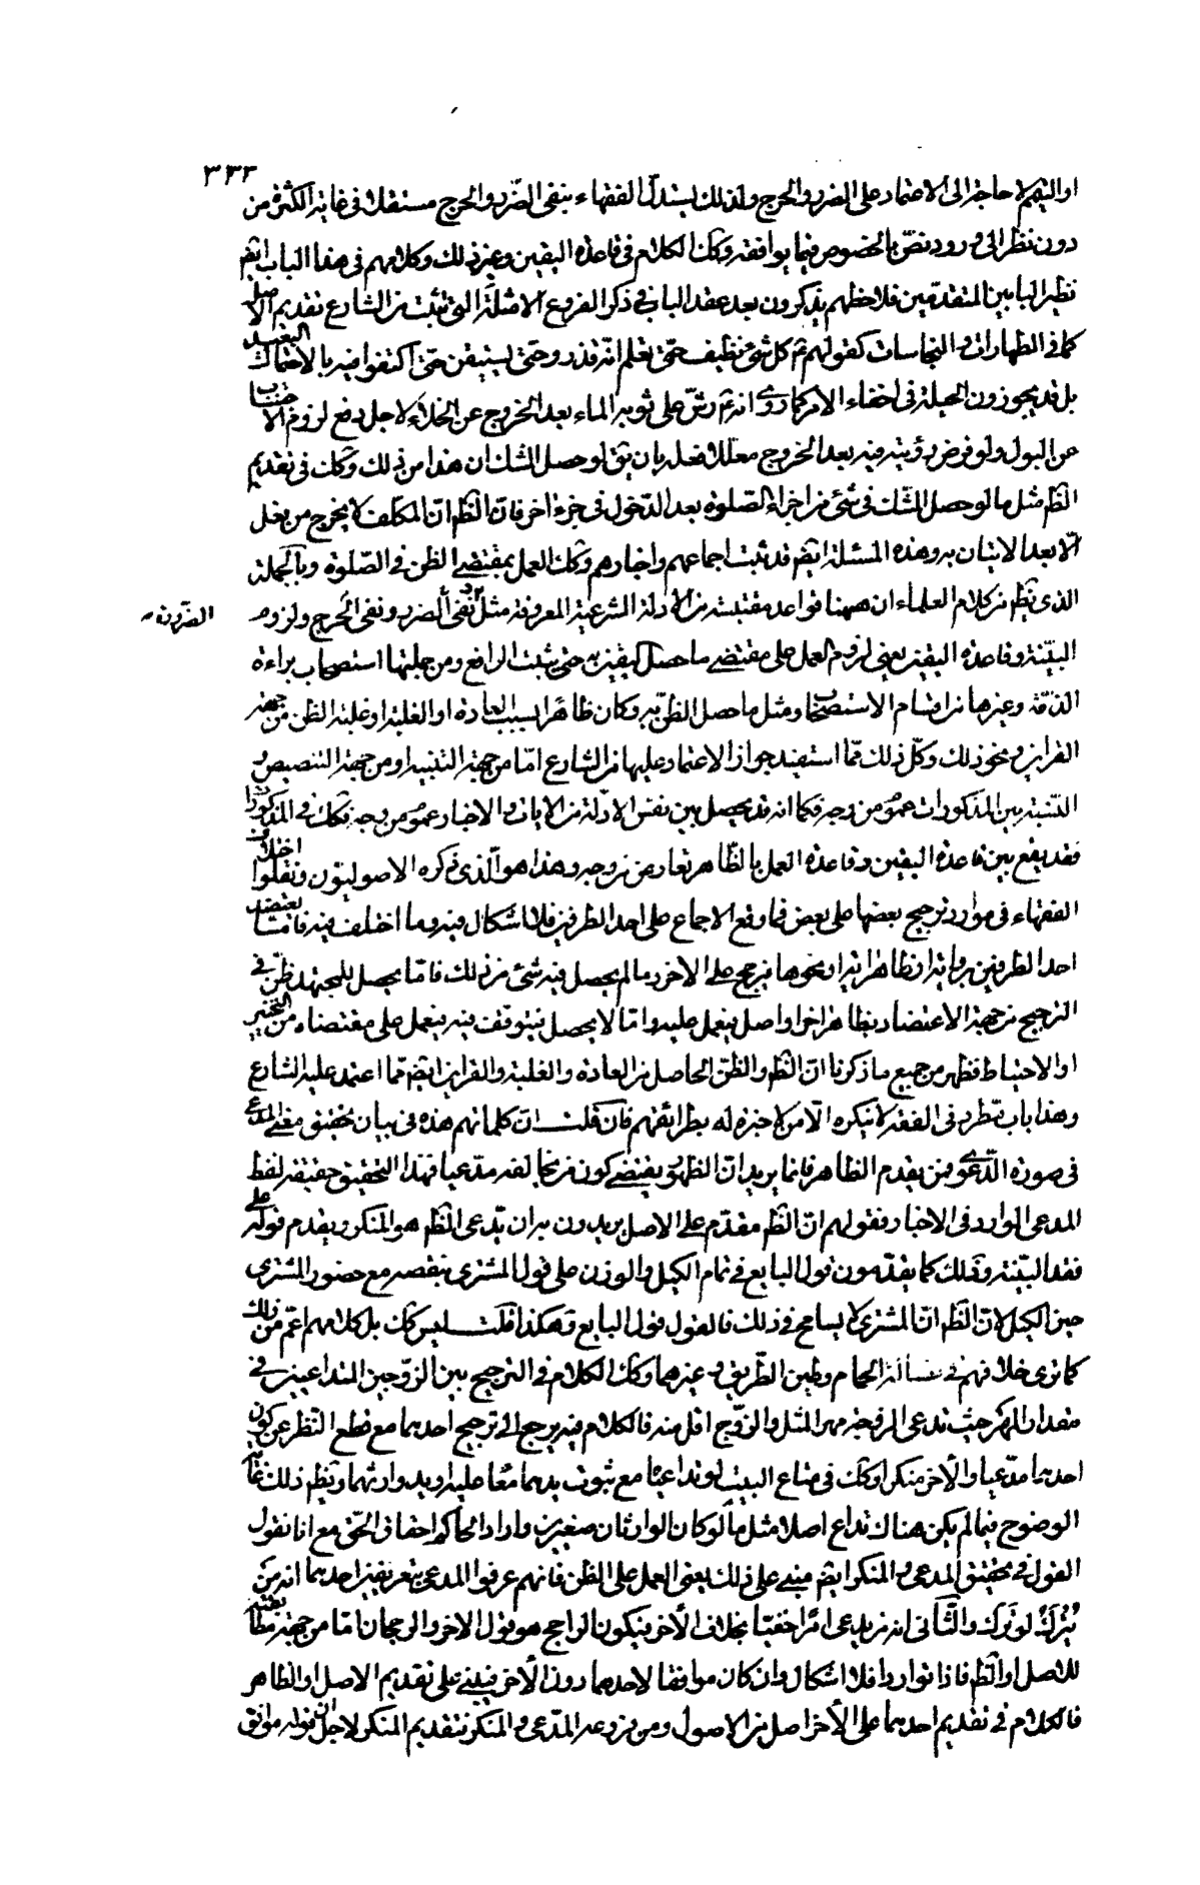 ٣٣٢
او التيمم لا حاجة الى الاعتماد على الضرر والحرج ولذلك يستدل الفقهاء بنفى الضّرر والحرج مستقلا فى غاية الكثرة من
دون نظر الى ورود نصّ بالخصوص فيما يوافقه وكك الكلام فى قاعدة اليقين وغير ذلك وكلامهم فى هذا الباب ايضم
نظير البابين المتقدمين فلاحظهم يذكرون بعد عقد الباب فى ذكر الفروع الامثلة التى تثبت من الشارع تقديم الاصل
كما فى الطهارات والنجاسات كقولهم ثم كل شئ نظيف حتى تعلم انه قذر وحتى يستيقن حتى اكتفوا فيه بالاحتمال البعيد
بل قد يجوزون الحيلة فى اخفاء الامر كما روى انه ثم رشّ على ثوبه الماء بعد الخروج عن الخلاء لاجل دفع لزوم الاجتناب
عن البول ولو فرض رؤيته فيه بعد الخروج معللا فعله بان يق لو حصل الشك ان هذا من ذلك وكك فى تقديم
الظم مثل ما لو حصل الشك فى شئ من اجزاء الصّلوة بعد الدّخول فى جزء اخر فانّ الظم انّ المكلّف لا يخرج من فعل
الا بعد الاتيان به وهذه المسئلة ايضم قد ثبت اجماعهم واخبارهم وكك العمل بمقتضى الظن فى الصّلوة وبالجملة
الذى يظم من كلام العلماء ان ههنا قواعد مقتبسة من الادلة الشرعية المعروفة مثل نفى الضرر ونفى الحرج ولزوم
البيّنة وقاعدة اليقين يعنى لزوم العمل على مقتضى ما حصل اليقين به حتى يثبت الرافع ومن جملتها استصحاب براءة
الذمّة وغيرها من اقسام الاستصحاب ومثل ما حصل الظن به وكان ظاهرا بسبب العادة او الغلبة او غلبة الظن من جهة
القراين ونحو ذلك وكلّ ذلك ممّا استفيد جواز الاعتماد عليها من الشارع امّا من جهة التنبيه او من جهة التنصيص و
النّسبة بين المذكورات عموم من وجه فكما انه قد يحصل بين نفس الادلّة من الايات والاخبار عموم من وجه فكك فى المذكورات
فقد يقع بين قاعدة اليقين وقاعدة العمل بالظاهر تعارض من وجه وهذا هو الّذى ذكره الاصوليّون ونقلوا اختلاف
الفقهاء فى موارد ترجيح بعضها على بعض فما وقع الاجماع على احد الطرفين فلا اشكال فيه وما اختلف فيه فامّا يعتضد
احد الطرفين برواية او ظاهر اية او نحوها فيرجح على الاخر وما لم يحصل فيه شئ من ذلك فامّا يحصل للمجتهد ظنّ فى
الترجيح من جهة الاعتضاد بظاهر اخر او اصل فيعمل عليه وامّا لا يحصل فيتوقف فيه فيعمل على مقتضاه من التخيير
او الاحتياط فظهر من جميع ما ذكرنا انّ الظم والظنّ الحاصل من العادة والغلبة والقراين ايضم ممّا اعتمد عليه الشارع
وهذا باب مطّرد فى الفقه لا ينكره الّا من لا خبرة له بطرائقهم فان قلت انّ كلماتهم هذه فى بيان تحقيق معنى المدعى
فى صورة الدّعوى فمن يقدم الظاهر فانما يريد انّ الظهور يقتضى كون من يخالفه مدّعيا فهذا التحقيق حقيقة لفظ
المدعى الوارد فى الاخبار فقولهم انّ الظم مقدّم على الاصل يريدون به ان مدّعى الظم هو المنكر ويقدم قوله على
فقد البيّنة وذلك كما يقدّمون قول البايع فى تمام الكيل والوزن على قول المشترى بنقصه مع حضور المشترى
حين الكيل لانّ الظم انّ المشترى لا يسامح فى ذلك فالقول قول البايع وهكذا قلت ليس كك بل كلامهم اعم من ذلك
كما ترى خلافهم فى غسالة الحمام وطين الطّريق وغيرهما وكك الكلام فى الترجيح بين الزّوجين المتداعيين فى
مقدار المهر حيث تدعى الزوجة مهر المثل والزّوج اقل منه فالكلام فيه يرجع الى ترجيح احدهما مع قطع النظر عن كون
احدهما مدّعيا والاخر منكرا وكك فى متاع البيت لو تداعيا مع ثبوت يدهما معًا عليه او يد وارثهما ويظم ذلك غاية
الوضوح فيما لم يكن هناك تداع اصلا مثل ما لو كان الوارثان صغيرين واراد الحاكم احقاق الحق مع انا نقول
القول فى تحقيق المدعى والمنكر ايضم مبنى على ذلك يعنى العمل على الظن فانهم عرفوا المدعى بتعريفين احدهما انه من
يُتْرَكُ لو تَرَكَ والثّانى انه من يدعى امرًا خفيّا بخلاف الاخر فيكون الراجح هو قول الاخر والرجحان امّا من جهة مطابقته
للاصل او الظم فاذا تواردا فلا اشكال وان كان موافقا لاحدهما دون الاخر فيبنى على تقديم الاصل او الظاهر
فالكلام فى تقديم احدهما على الاخر اصل من الاصول ومن فروعه المدّعى والمنكر فتقديم المنكر لاجل ان قوله موافق